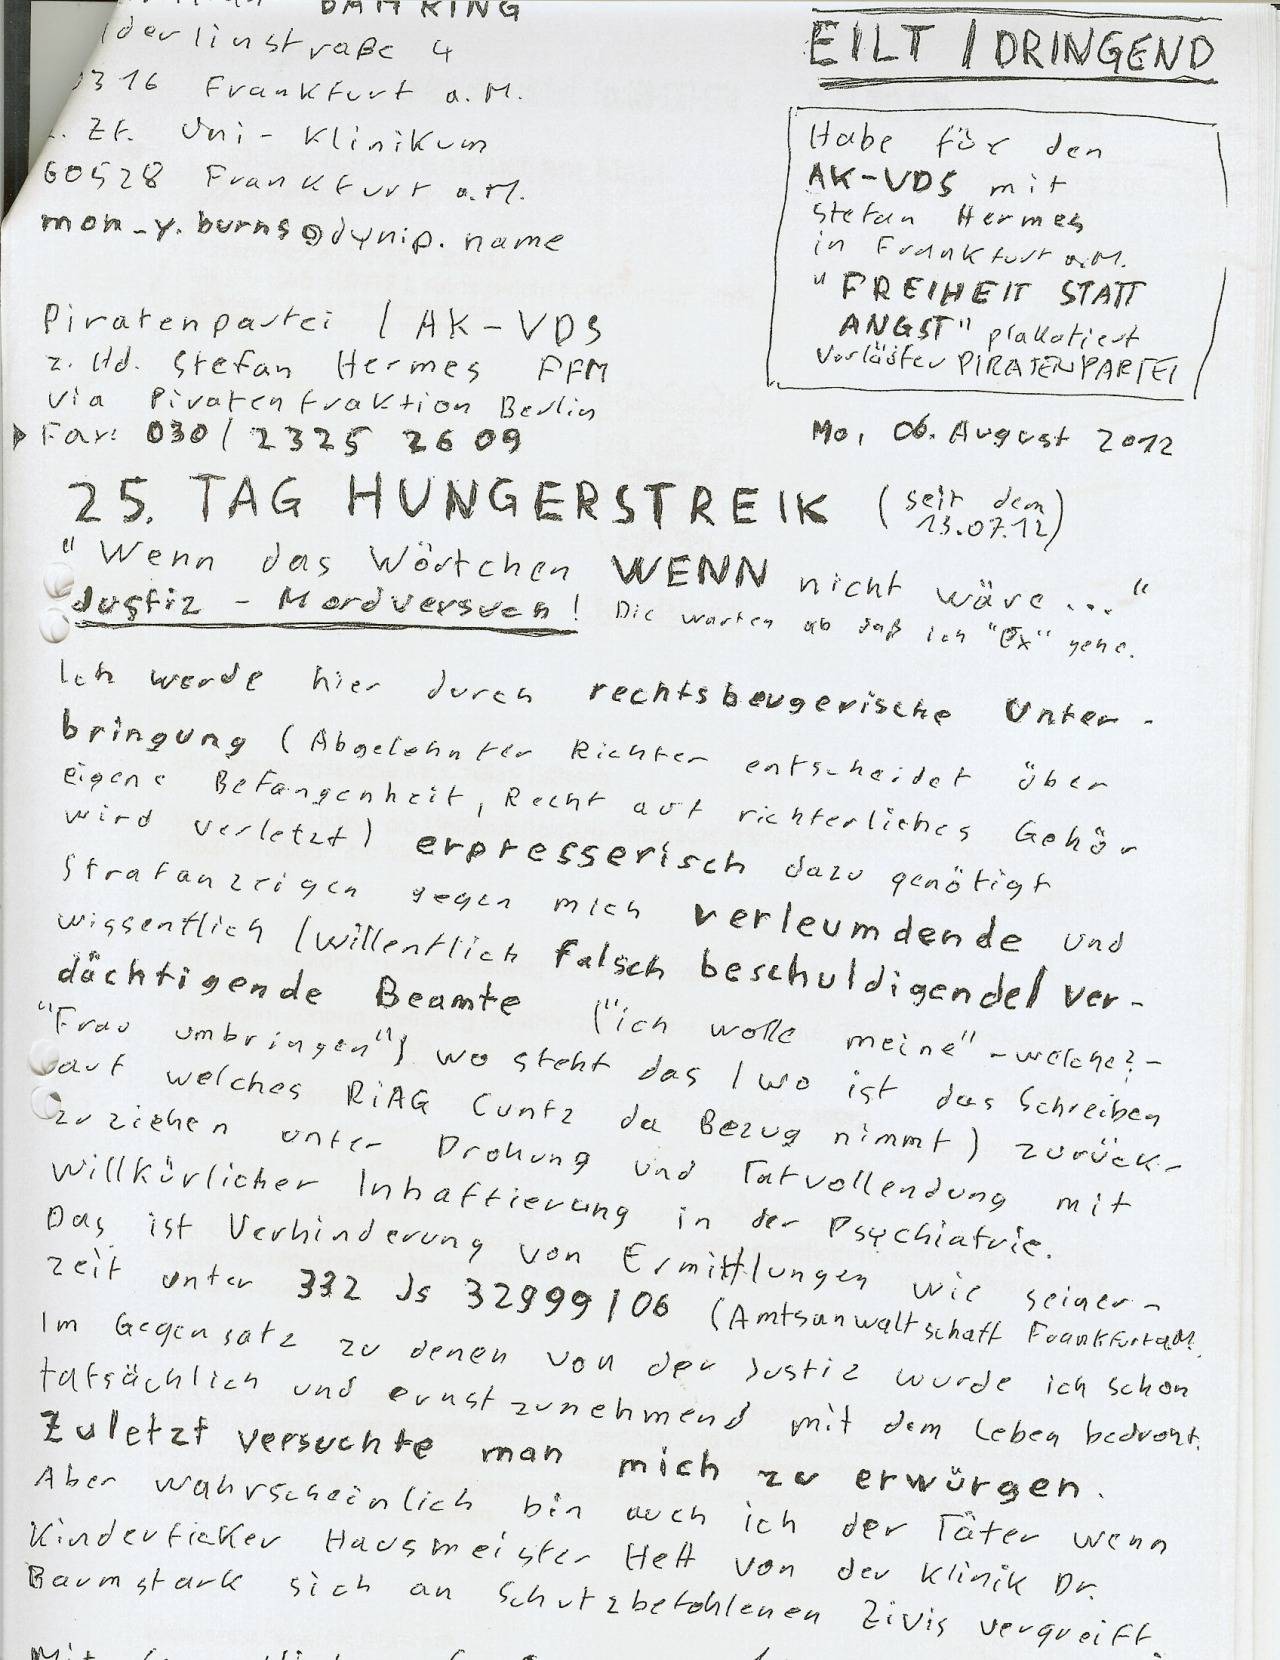 BÄHRING
derlinstraße 4
316 Frankfurt a.M.
z. Zt. Uni-Klinikum
60528 Frankfurt a.M.
mon_y.burns@dynip.name
EILT / DRINGEND
Habe für den
AK-VDS mit
Stefan Hermes
in Frankfurt a.M.
"FREIHEIT STATT
ANGST" plakatiert
Vorläufer PIRATENPARTEI
Piratenpartei / AK-VDS
z. Hd. Stefan Hermes FFM
via Piratenfraktion Berlin
Fax: 030 / 2325 2609
Mo, 06. August 2012
25. TAG HUNGERSTREIK (seit dem 13.07.12)
"Wenn das Wörtchen WENN nicht wäre ..."
Justiz-Mordversuch! Die warten ab daß ich "Ex" gehe.
Ich werde hier durch rechtsbeugerische Unter-
bringung (Abgelehnter Richter entscheidet über
eigene Befangenheit, Recht auf richterliches Gehör
wird verletzt) erpresserisch dazu genötigt
Strafanzeigen gegen mich verleumdende und
wissentlich / willentlich falsch beschuldigende / ver-
dächtigende Beamte ("ich wolle meine" -welche?-
"Frau umbringen") wo steht das / wo ist das Schreiben
auf welches RiAG Cuntz da Bezug nimmt) zurück-
zuziehen unter Drohung und Tatvollendung mit
willkürlicher Inhaftierung in der Psychiatrie.
Das ist Verhinderung von Ermittlungen wie seiner-
zeit unter 332 Js 32999/06 (Amtsanwaltschaft Frankfurt a.M.
Im Gegensatz zu denen von der Justiz wurde ich schon
tatsächlich und ernstzunehmend mit dem Leben bedroht.
Zuletzt versuchte man mich zu erwürgen.
Aber wahrscheinlich bin auch ich der Täter wenn
Kinderficker Hausmeister Heft von der Klinik Dr.
Baumstark sich an Schutzbefohlenen Zivis vergreift.